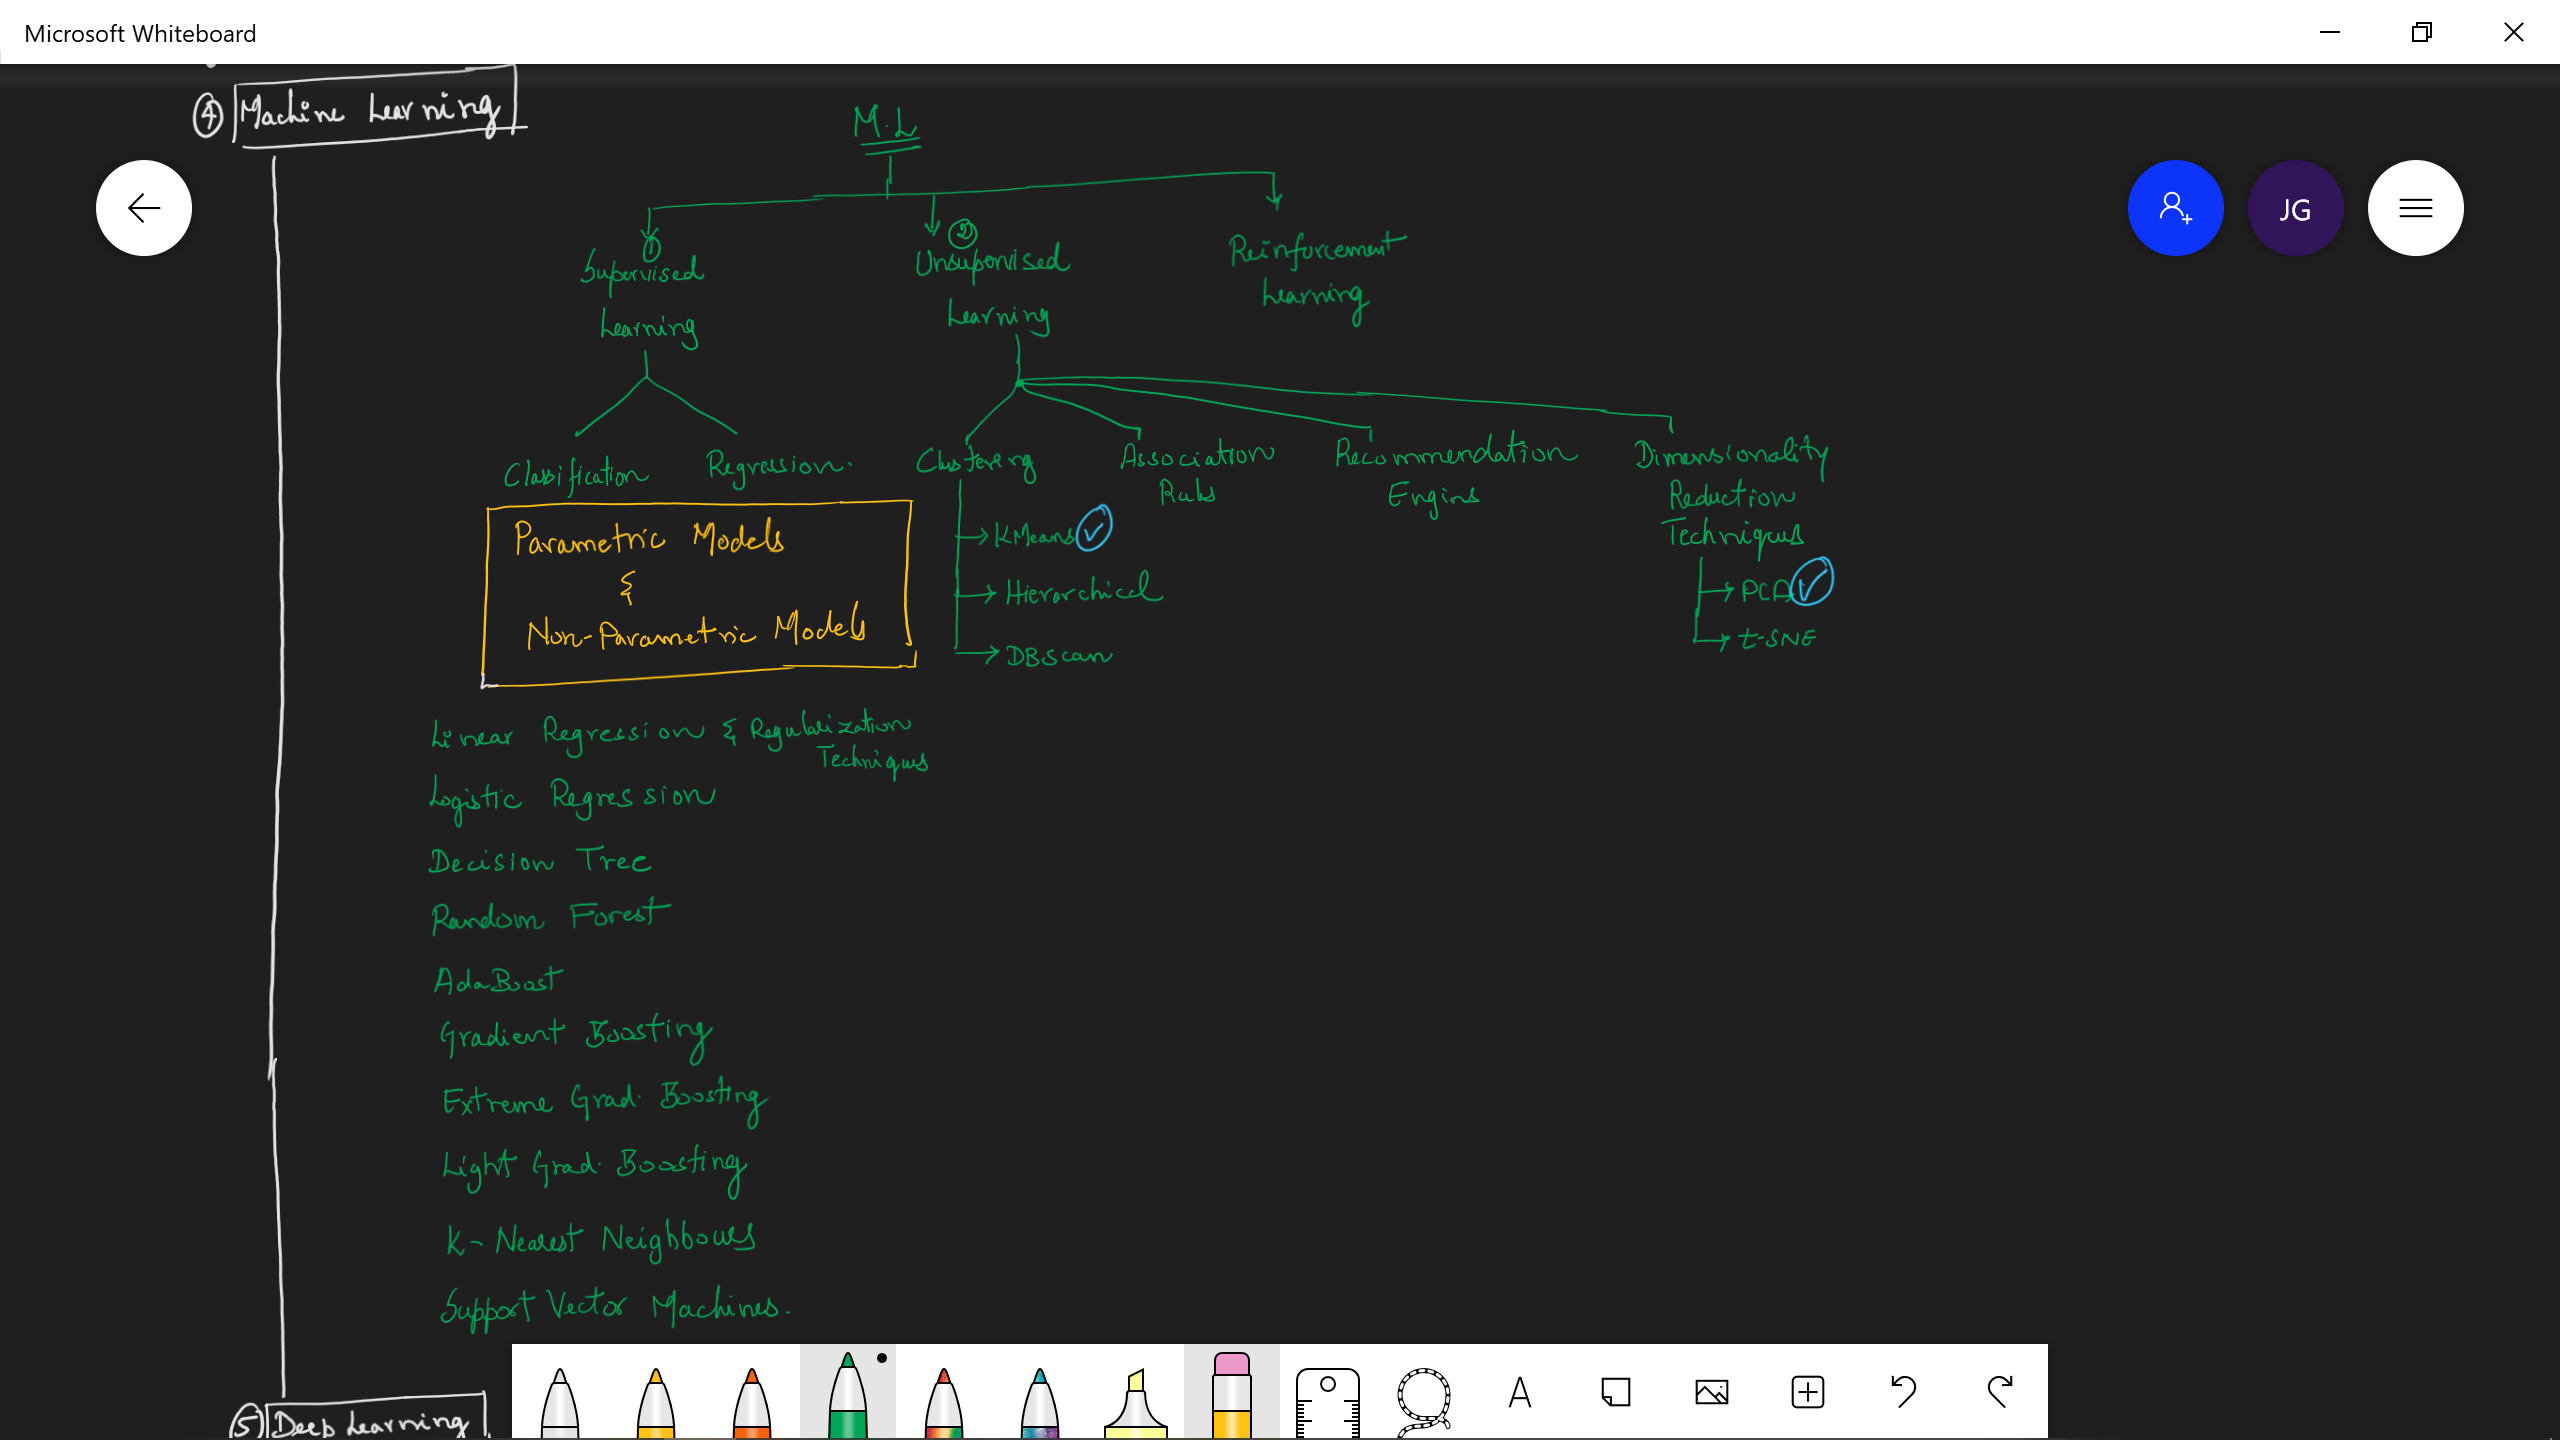 Microsoft Whiteboard
④ Machine Learning
M.L
JG
① Supervised Learning
② Unsupervised Learning
Reinforcement Learning
Classification
Regression.
Clustering
Association Rules
Recommendation Engines
Dimensionality Reduction Techniques
Parametric Models
&
Non-Parametric Models
KMeans
Hierarchical
DBScan
PCA
t-SNE
Linear Regression & Regularization Techniques
Logistic Regression
Decision Tree
Random Forest
AdaBoost
Gradient Boosting
Extreme Grad. Boosting
Light Grad. Boosting
K-Nearest Neighbours
Support Vector Machines.
⑤ Deep Learning